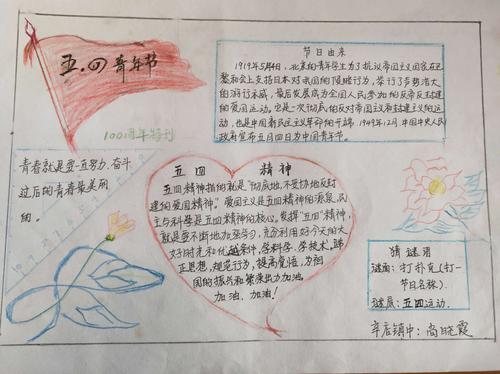 五·四青年节
100周年特刊
节日由来
1919年5月4日，北京的青年学生为了抗议帝国主义国家在巴
黎和会上支持日本对我国的侵略行为，举行了声势浩大
的游行示威，最后发展成为全国人民参加的反帝反封建
的爱国运动。它是一次彻底的反对帝国主义和封建主义的运
动，也是中国新民主主义革命的开端。1949年12月，中国中央人民
政府宣布五月四日为中国青年节。
青春就是要一直努力，奋斗
过后的青春最美丽
的。
五四 精神
五四精神指的就是"彻底地，不妥协地反封
建的爱国精神"。爱国主义是五四精神的源泉，民
主与科学是五四精神的核心。发挥"五四"精神，
就是要不断地加强学习，充分利用好今天的大
好时光和优越条件，学科学、学技术，端
正思想，规范行为，提高觉悟，为祖
国的振兴和繁荣出力加油。
加油，加油！
猜谜用
谜面：打扑克（打一
节日名称）.
谜底：五四运动.
辛店镇中：高晓霞